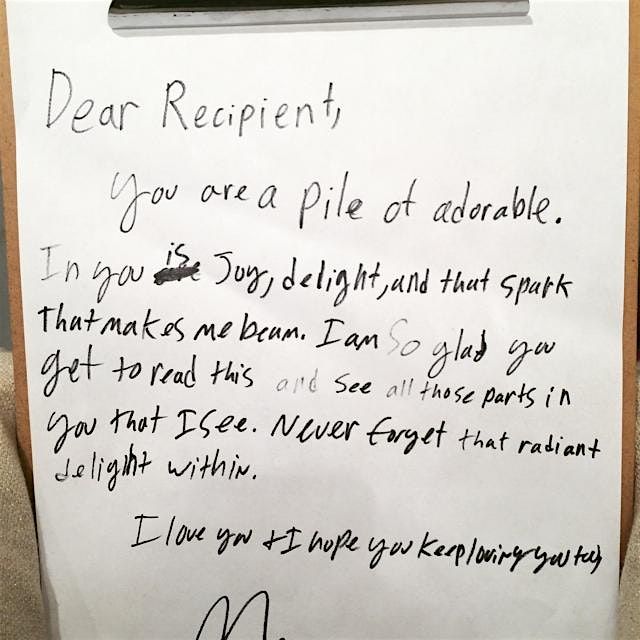 Dear Recipient,
You are a pile of adorable.
In you is Joy, delight, and that spark
that makes me beam. I am so glad you
get to read this and see all those parts in
you that I see. Never forget that radiant
delight within.
I love you + I hope you keep loving you too
M